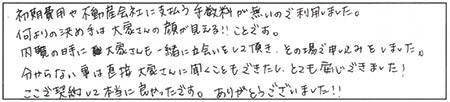 初期費用や不動産会社に支払う手数料が無いのでご利用しました。
何よりの決め手は大家さんの顔が見える!!ことです。
内覧の時に大家さんも一緒に立会いをして頂き、その場で申し込みをしました。
分からない事は直接大家さんに聞くこともできたし、とても安心できました!
ここで契約して本当に良かったです。ありがとうございました!!